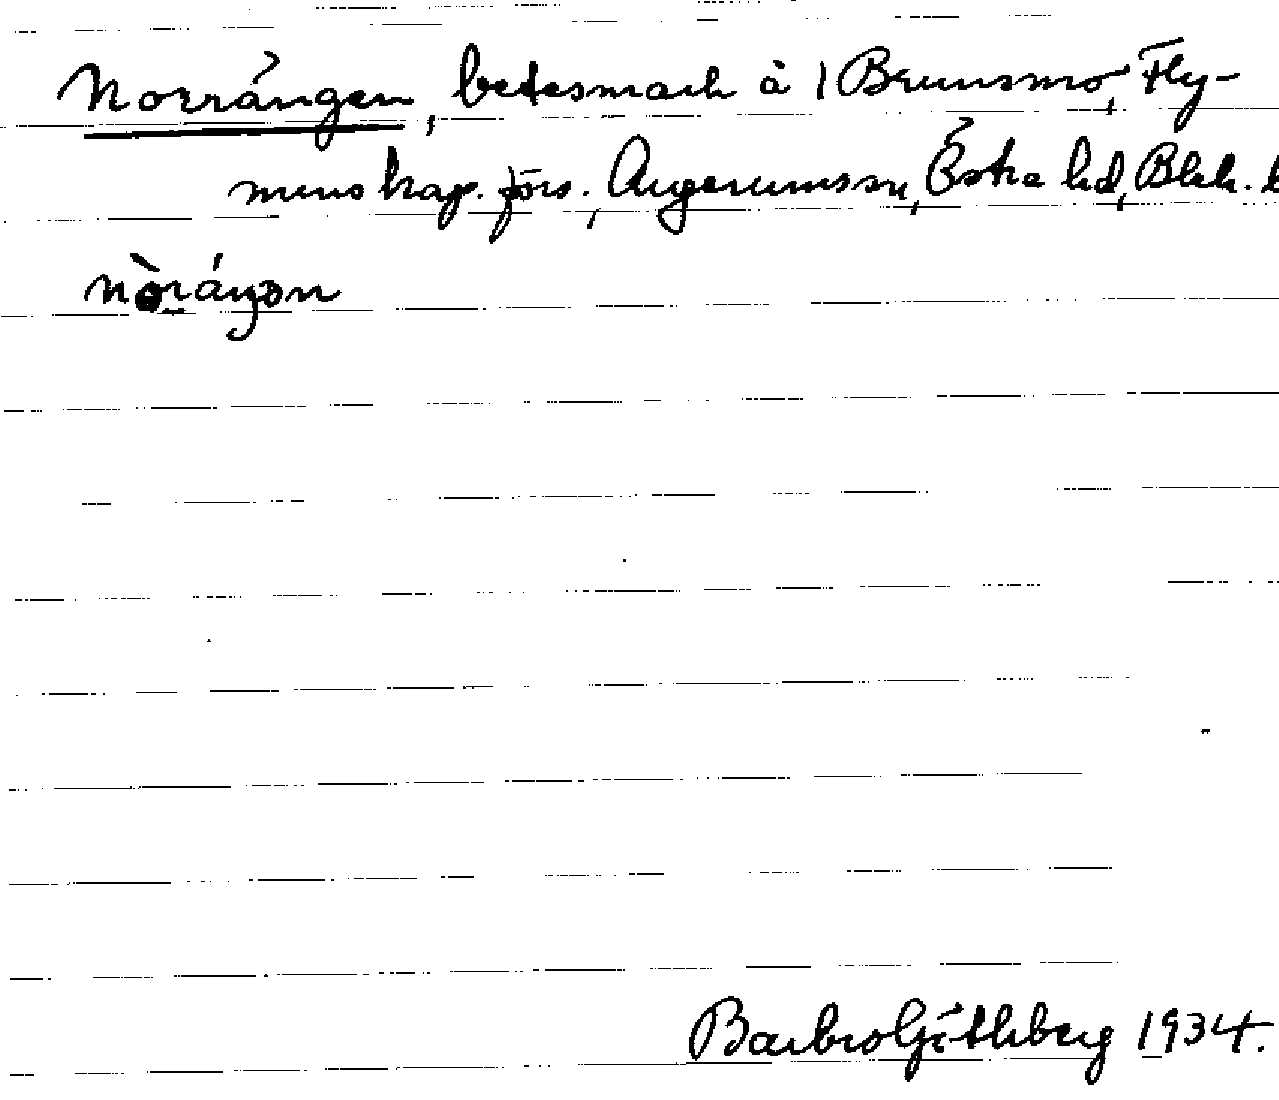 Norrängen, betesmark å 1 Brunsmo, Fly-
mens kap. förs., Augerumssn, Östra hd, Blek. l
Barbro Göthberg 1934.